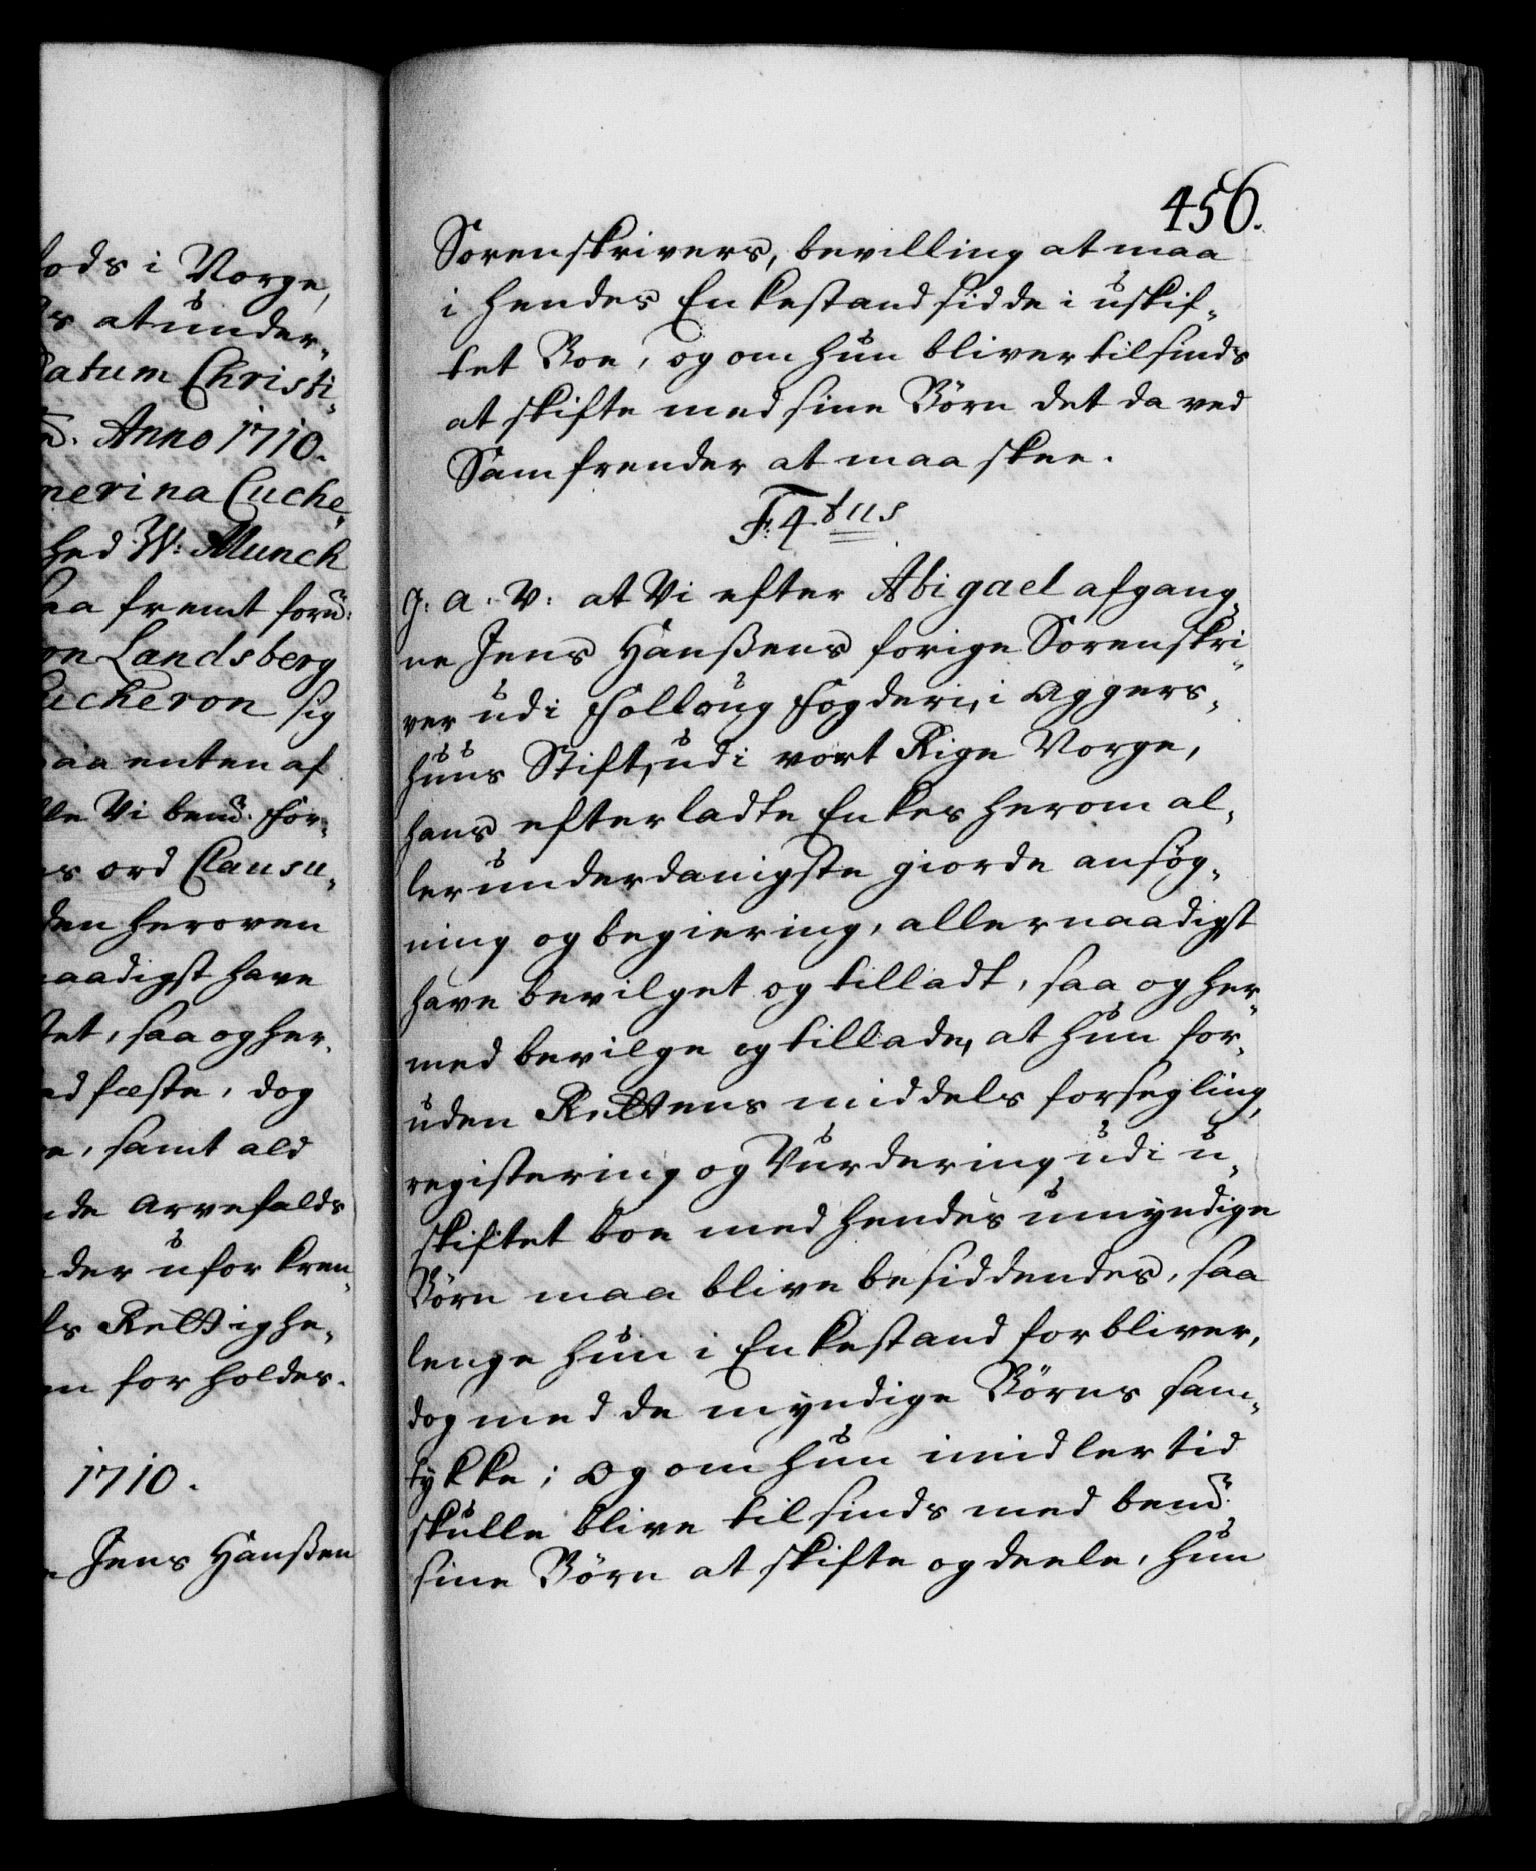 fods i Norge,
s at under-
Datum Christi-
Anno 1710.
merina Cuche-
hed W: Munch
saa fremt forñ:
on Landsberg
Cucheron sig
aa enten af
lle Vi bemñ: for-
s ord Clausu-
den herover
aadigst have
tet, saa og her-
ad fæste, dog
e, samt ald
de Arvefalds
der uforkren-
ls Rettighe-
m forholdes.
1710.
Jens Hanßen
456.
Sorenskrivers, bevilling at maa
i hendes Enkestand sidde i uskif-
tet Boe, og om hun bliver tilsinds
at skifte med sine Börn det da ved
Samfrender at maa skee.
F: 4tus
G: a: V: at Vi efter Abigael afgang-
ne Jens Hanßens forige Sorenskri-
ver udi Folloug Fogderie, i Aggers-
huus Stift, udi vort Rige Norge,
hans efterladte Enkes herom al-
lerunderdanigste giorde ansög-
ning og begiering, allernaadigst
have bevilget og tilladt, saa og her-
med bevilge og tillade, at hun for-
uden Rettens middels forsegling,
registering og Vurdering udi u-
skiftet boe med hendes umyndige
Börn maa blive besiddendes, saa
lenge hun i Enkestand forbliver,
dog med de myndige Börns sam-
tykke; Og om hun imidlertid
skulle blive tilsinds med bemñ:
sine Börn at skifte og deele, hun